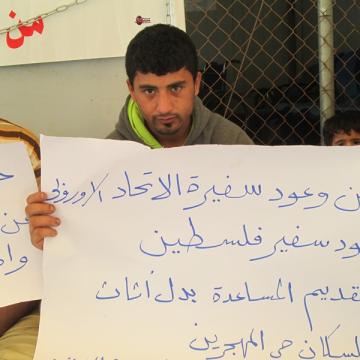 من
ين وعود سفيرة الاتحاد الاوروبي
ود سفير فلسطين
قديم المساعدة بدل أثاث
لسكان حي المهجرين